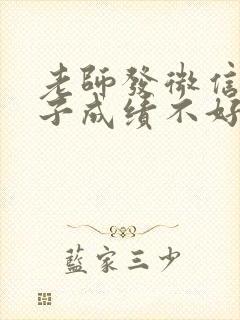 老師發微信
子成績不好
藍家三少